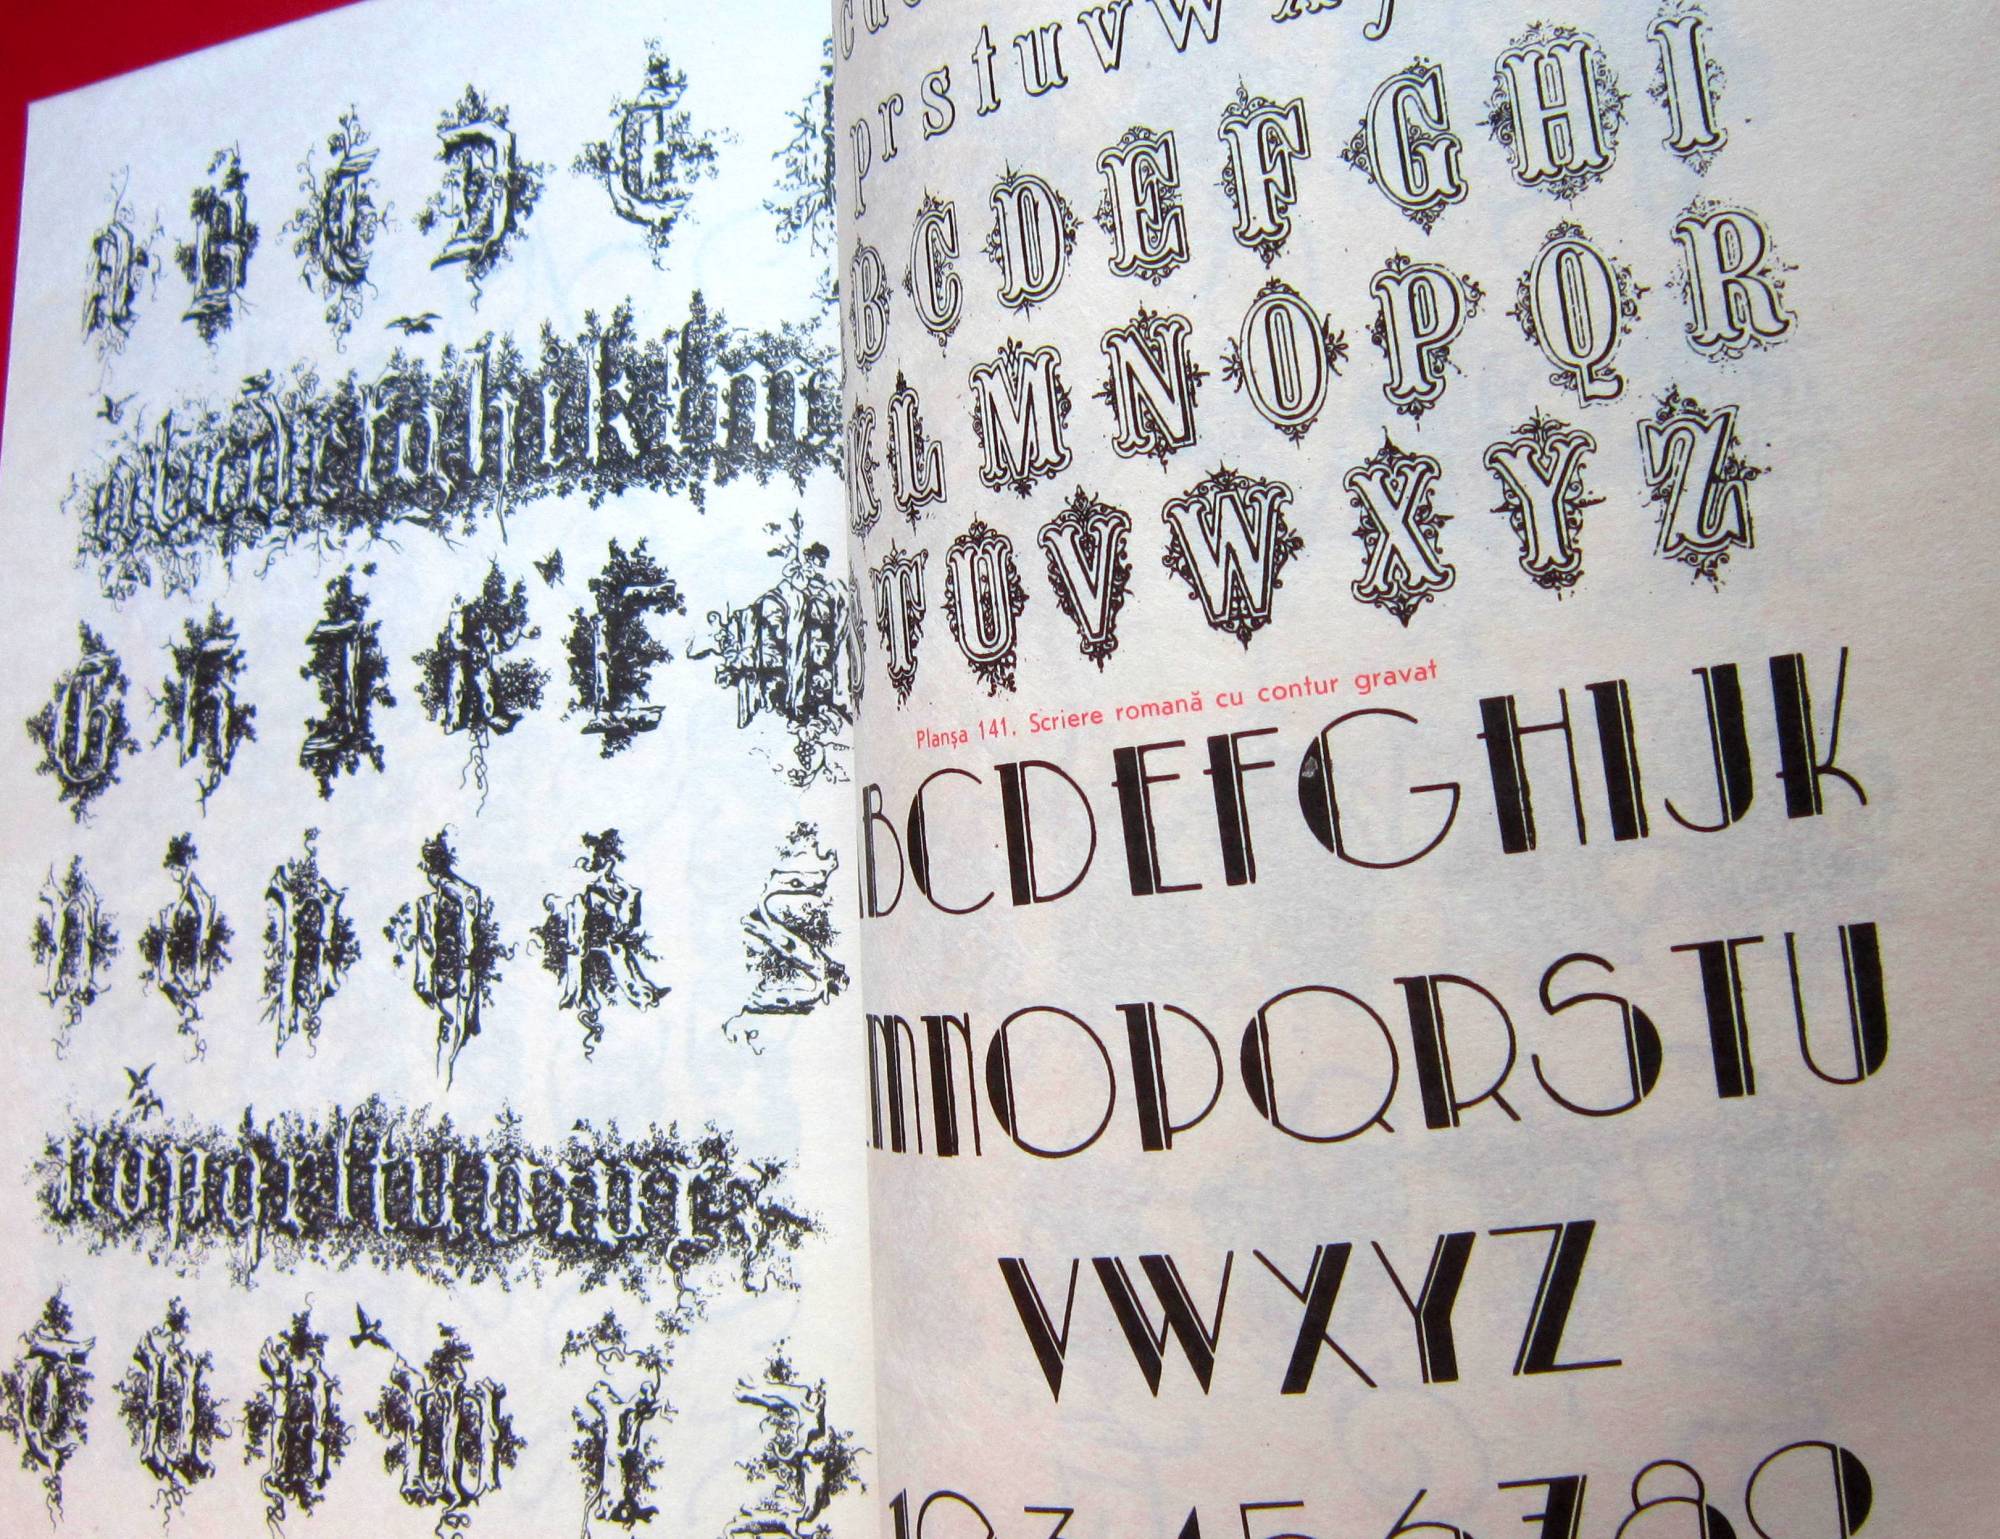 A B C D E
a b c d e f g h i k l m
G H I K L M
N O P Q R S
n o p q r s t u v w x y z
T U V W Y Z
p r s t u v w x y
B C D E F G H I
K L M N O P Q R
S T U V W X Y Z
Planșa 141. Scriere romană cu contur gravat
A B C D E F G H I J K
L M N O P Q R S T U
V W X Y Z
1 2 3 4 5 6 7 8 9